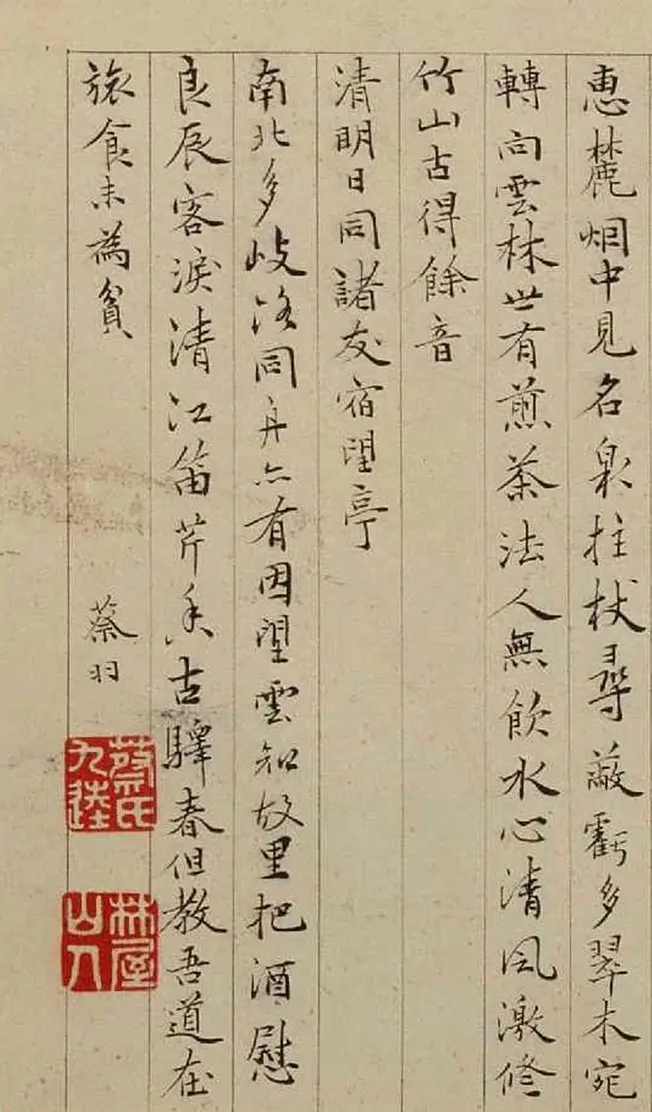 惠麓烟中見名泉拄杖尋蔽虧多翠木宛
轉向雲林世有煎茶法人無飲水心清風激修
竹山古得餘音
清明日同諸友宿望亭
南北多歧路同舟亦有因望雲知故里把酒慰
良辰客淚清江笛芹香古驛春但教吾道在
旅食未為貧
蔡羽
蔡氏九逵
林屋山人